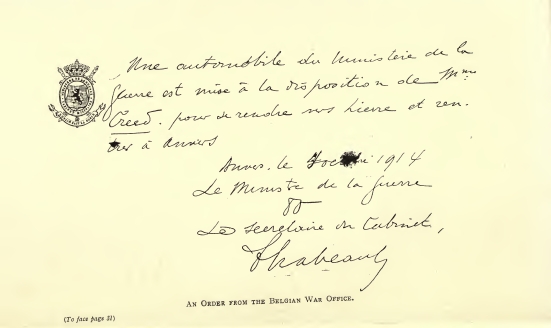 Une automobile du Ministère de la
Guerre est mise à la disposition de Mme
Creed. pour se rendre vers Lierre et ren-
trer à Anvers
Anvers, le 1914
Le Ministre de la Guerre
Le Secrétaire du Cabinet,
AN ORDER FROM THE BELGIAN WAR OFFICE.
(To face page 31)